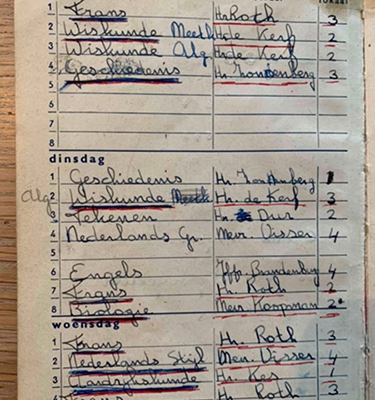 lokaal
1 Frans Hr. Roth 3
2 Wiskunde Meetk Hr. de Kerf 2
3 Wiskunde Alg. Hr. de Kerf 2
4 Geschiedenis Hr. 3
5
6
7
8
dinsdag
1 Geschiedenis Hr. 1
Alg. 2 Wiskunde Meetk Hr. de Kerf 3
3 Tekenen Hr. Dur 2
4 Nederlands Gr. Mevr. Visser 4
5
6 Engels Jffr. Brandenburg 4
7 Frans Hr. Roth 2
8 Biologie Mevr. Koopman 2
woensdag
1 Frans Hr. Roth 3
2 Nederlands Stijl Mevr. Visser 4
3 Aardrijkskunde Hr. Kes 1
4 Hr. Roth 3